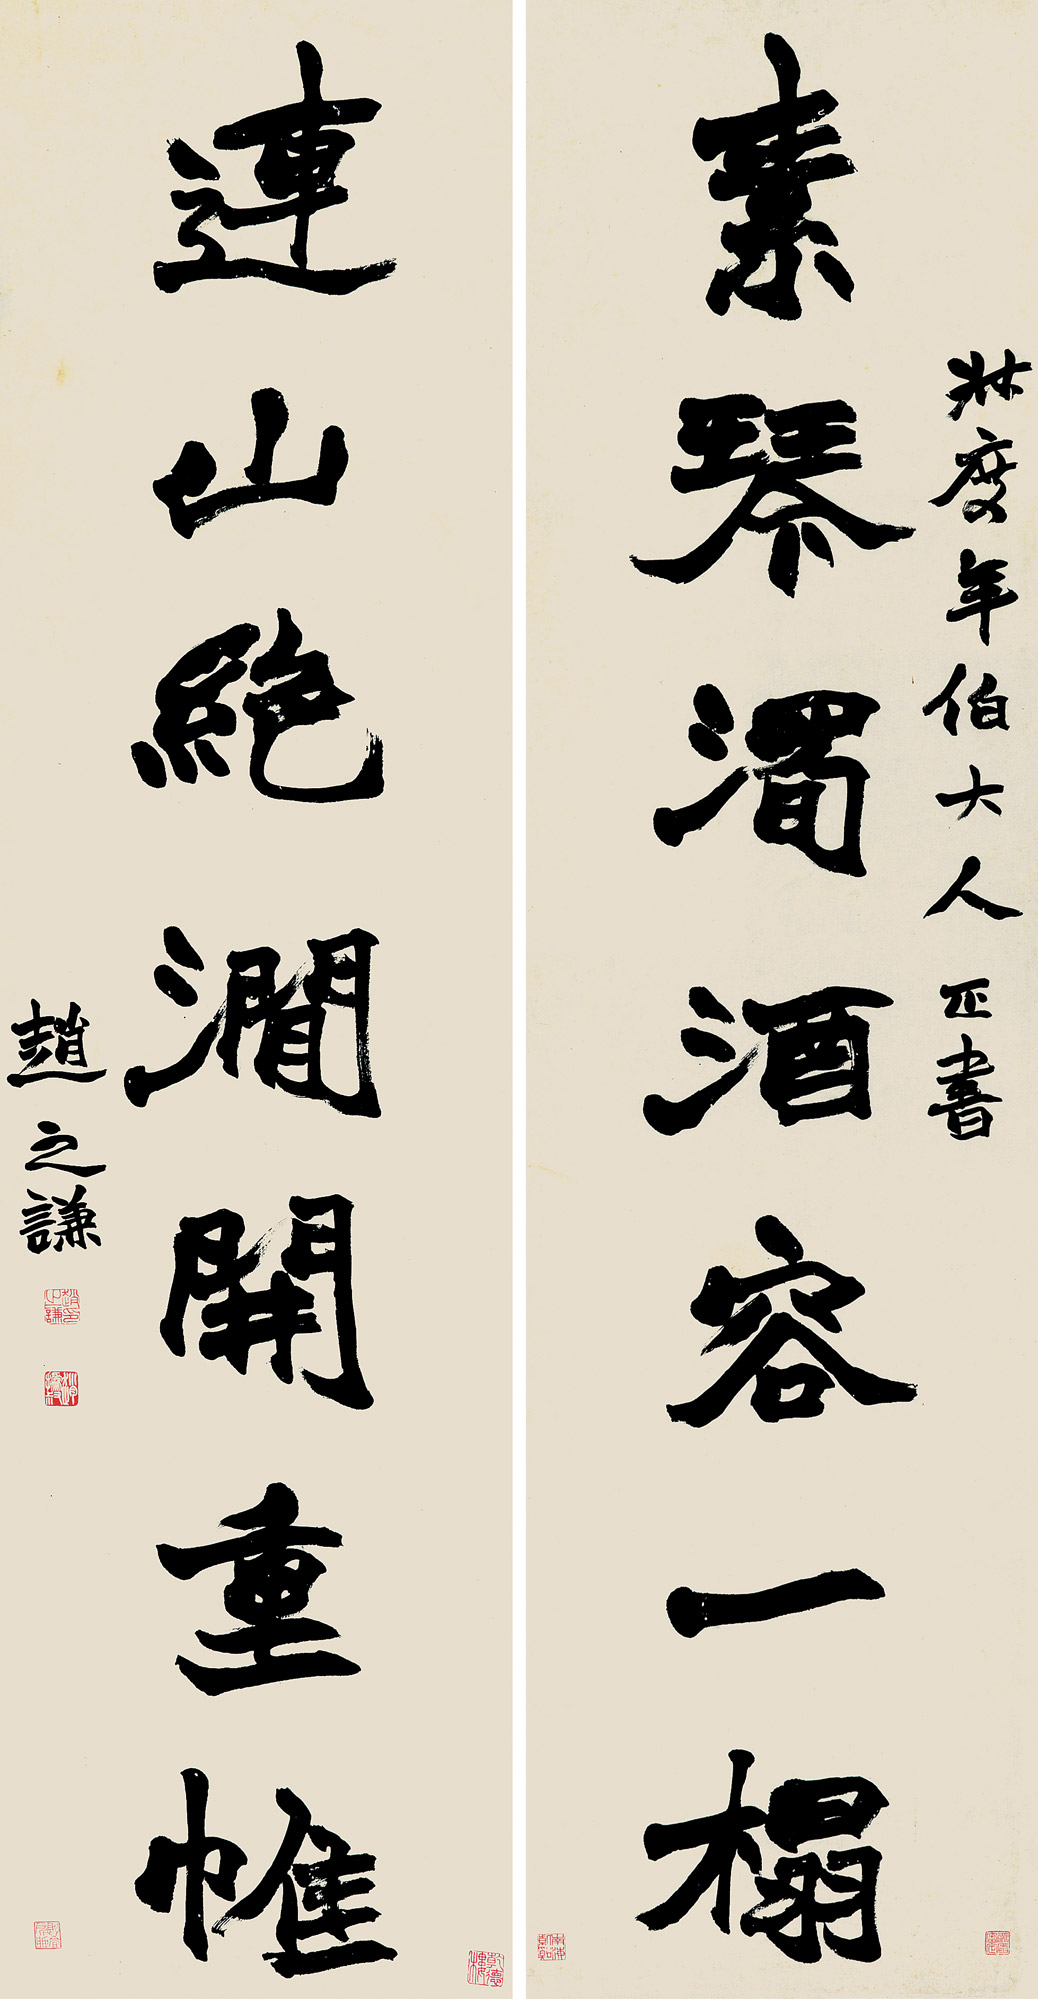 壯度年伯大人正書
素琴濁酒容一榻
連山絕澗開重帷
趙之謙